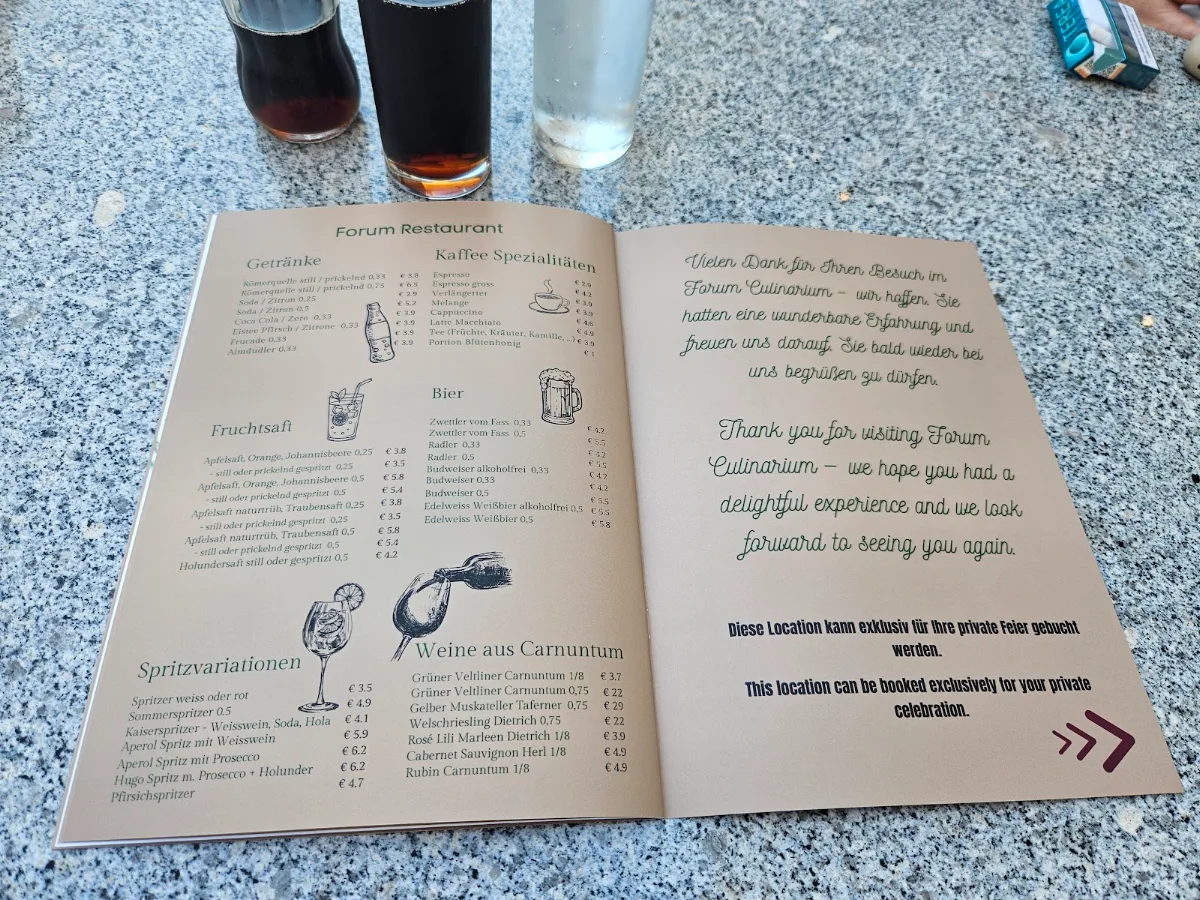 Forum Restaurant
Getränke
Römerquelle still / prickelnd 0,33 € 3.8
Römerquelle still / prickelnd 0,75 € 6.5
Soda / Zitron 0.25 € 2.9
Soda / Zitron 0,5 € 5.2
Coca Cola / Zero 0.33 € 3.9
Eistee Pfirsch / Zitrone 0,33 € 3.9
Frucade 0,33 € 3.9
Almdudler 0,33 € 3.9
Kaffee Spezialitäten
Espresso € 2.9
Espresso gross € 4.2
Verlängerter € 3.9
Melange € 3.9
Cappuccino € 4.8
Latte Macchiato € 4.9
Tee (Früchte, Kräuter, Kamille, ...) € 3.9
Portion Blütenhonig € 1
Fruchtsaft
Apfelsaft, Orange, Johannisbeere 0,25 € 3.8
- still oder prickelnd gespritzt 0,25 € 3.5
Apfelsaft, Orange, Johannisbeere 0,5 € 5.8
- still oder prickelnd gespritzt 0,5 € 5.4
Apfelsaft naturtrüb, Traubensaft 0,25 € 3.8
- still oder prickelnd gespritzt 0,25 € 3.5
Apfelsaft naturtrüb, Traubensaft 0,5 € 5.8
- still oder prickelnd gespritzt 0,5 € 5.4
Holundersaft still oder gespritzt 0,5 € 4.2
Bier
Zwettler vom Fass 0,33 € 4.2
Zwettler vom Fass 0,5 € 5.5
Radler 0,33 € 4.2
Radler 0,5 € 5.5
Budweiser alkoholfrei 0,33 € 4.2
Budweiser 0,33 € 4.2
Budweiser 0,5 € 5.5
Edelweiss Weißbier alkoholfrei 0,5 € 5.5
Edelweiss Weißbier 0,5 € 5.8
Spritzvariationen
Spritzer weiss oder rot € 3.5
Sommerspritzer 0.5 € 4.9
Kaiserspritzer - Weisswein, Soda, Hola € 4.1
Aperol Spritz mit Weisswein € 5.9
Aperol Spritz mit Prosecco € 6.2
Hugo Spritz m. Prosecco + Holunder € 6.2
Pfirsichspritzer € 4.7
Weine aus Carnuntum
Grüner Veltliner Carnuntum 1/8 € 3.7
Grüner Veltliner Carnuntum 0,75 € 22
Gelber Muskateller Taferner 0,75 € 29
Welschriesling Dietrich 0,75 € 22
Rosé Lili Marleen Dietrich 1/8 € 3.9
Cabernet Sauvignon Herl 1/8 € 4.9
Rubin Carnuntum 1/8 € 4.9
Vielen Dank für Ihren Besuch im
Forum Culinarium – wir hoffen, Sie
hatten eine wunderbare Erfahrung und
freuen uns darauf, Sie bald wieder bei
uns begrüßen zu dürfen.
Thank you for visiting Forum
Culinarium – we hope you had a
delightful experience and we look
forward to seeing you again.
Diese Location kann exklusiv für Ihre private Feier gebucht
werden.
This location can be booked exclusively for your private
celebration.
TEREA